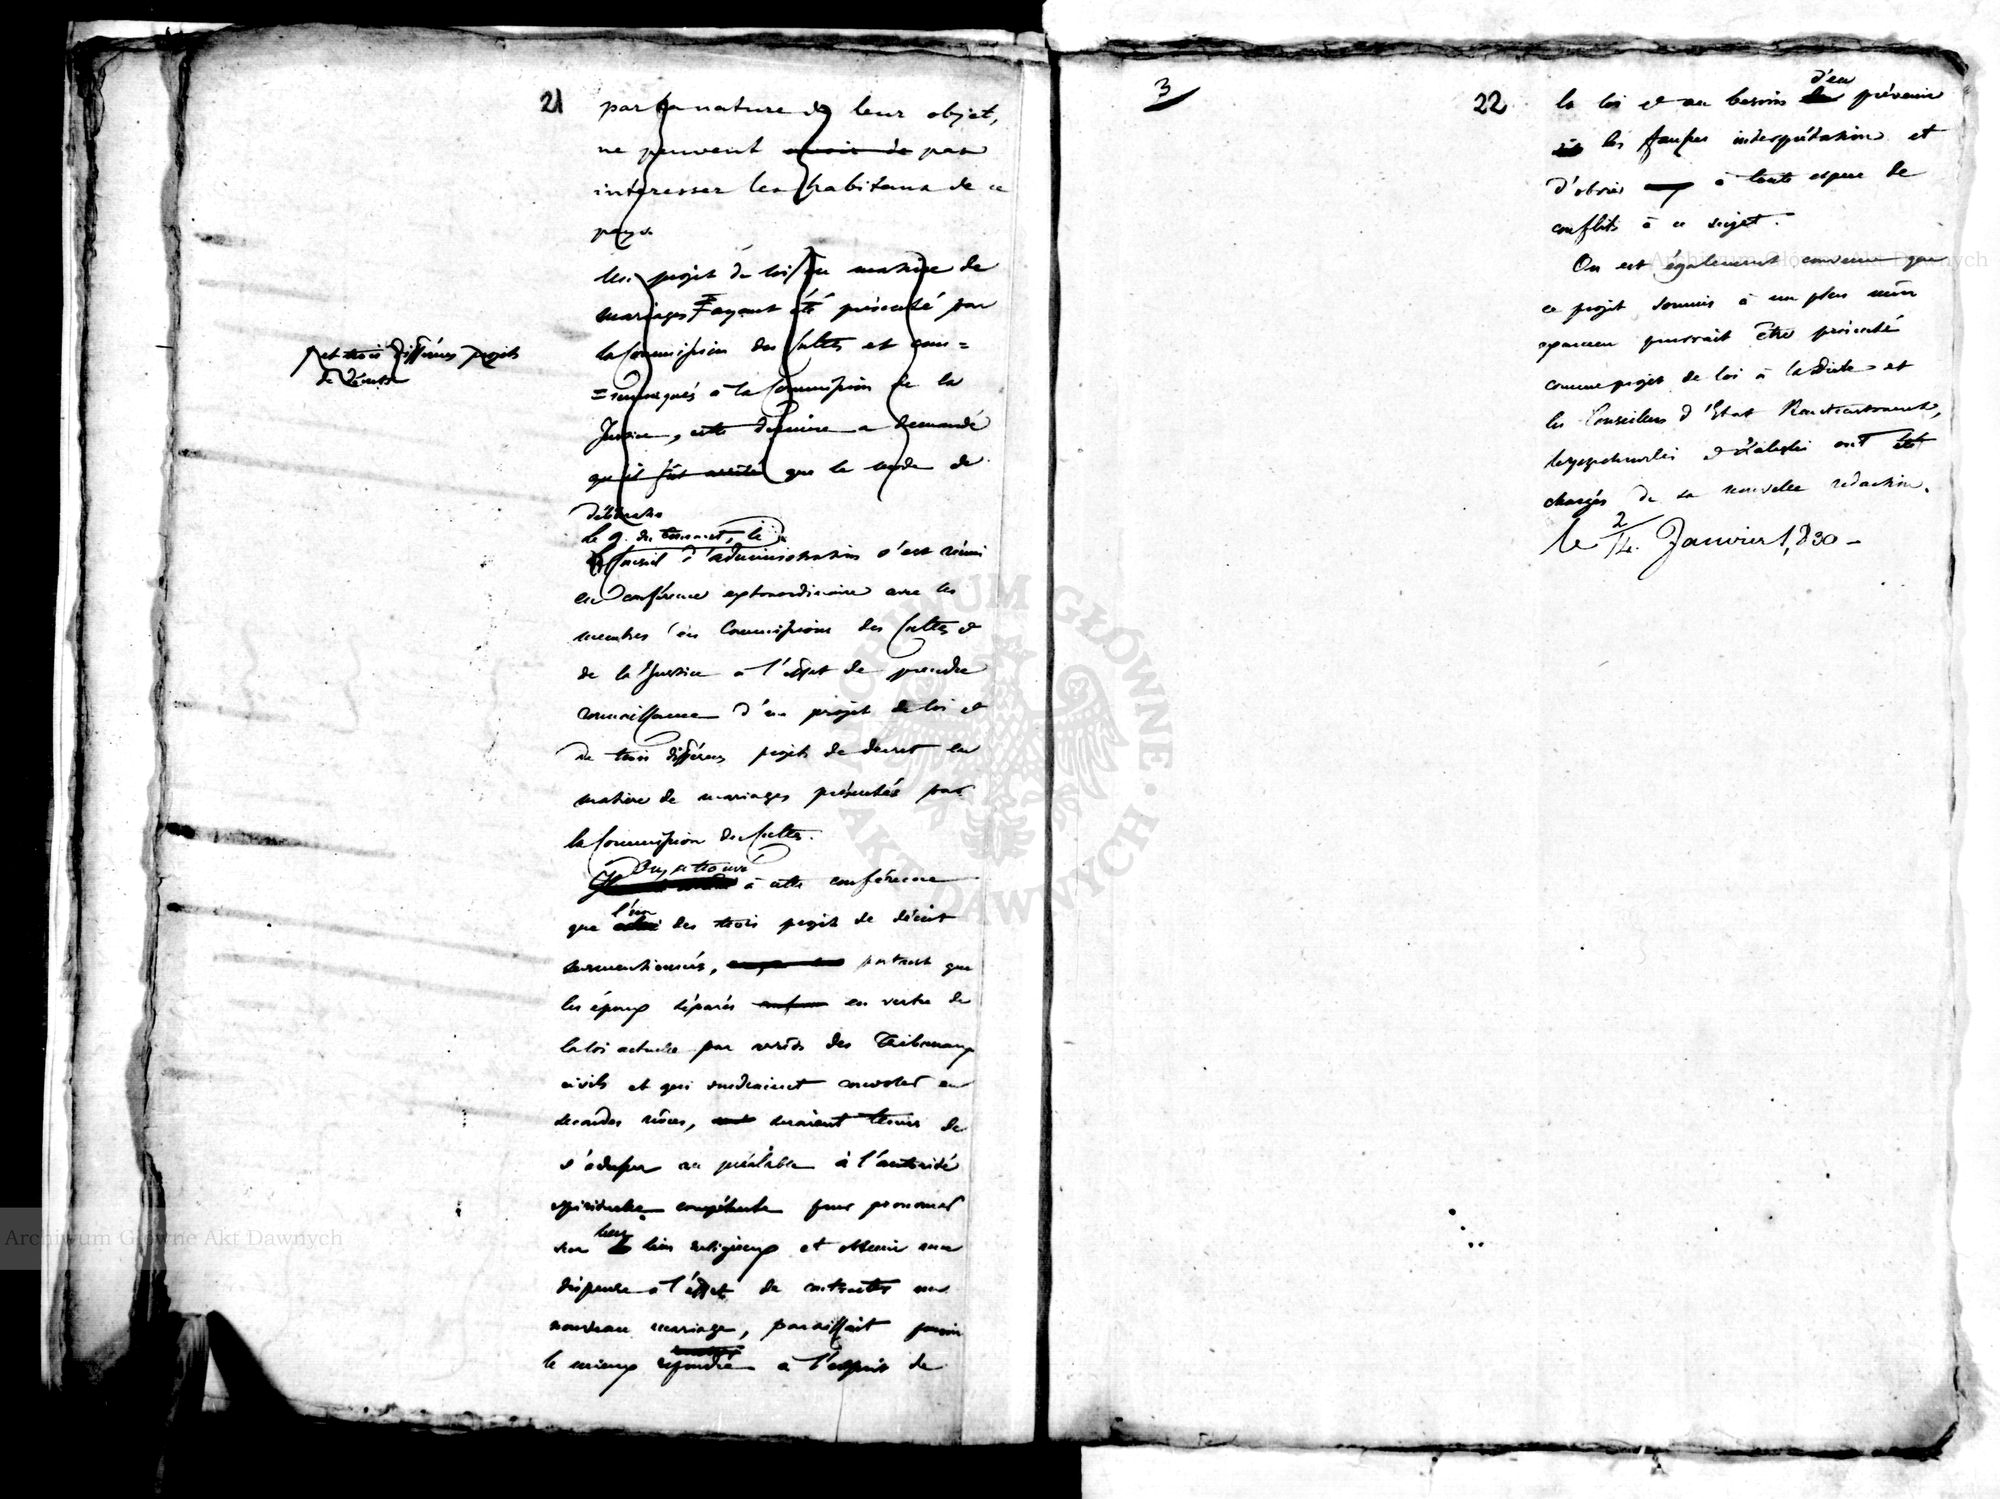 21
par la nature de leur objet,
ne peuvent avoir de pas
intéresser les habitans de ce
pays
Un projet de loi en matière de
mariages ayant été présenté par
la Commission des Cultes et com=
et trois différens projets
de décrets
=muniqués à la Commission de la
Justice, cette dernière a demandé
qu'il fût arrêté que le mode de
Le 9. du courant, le
Conseil d'administration s'est réuni
en conférence extraordinaire avec les
membres des Commissions des Cultes et
de la Justice à l'effet de prendre
connaissance d'un projet de loi et
de trois différens projets de decret en
matière de mariages présentés par
la Commission des Cultes.
On a trouvé
à cette conférence
l'un
que des trois projets de décret
susmentionnés, portant que
les époux séparés en vertu de
la loi actuelle par arrêts des Tribunaux
civils et qui voudraient convoler en
secondes nôces, seraient tenus de
s'adresser au préalable à l'autorité
spirituelle compétente pour prononcer
leur
sur lien religieux et obtenir une
dispense à l'effet de contracter un
nouveau mariage, paraissait pouvoir
le mieux répondre à l'esprit de
3
22
d'en
la loi et au besoin prévenir
les fausses interprétations et
d'obvier à toute espèce de
conflits à ce sujet.
On est également convenu que
ce projet soumis à un plus mûr
examen pourrait être présenté
comme projet de loi à la Diète et
les Conseillers d'Etat
et ont été
chargés de sa nouvelle rédaction.
le 2/14. Janvier 1,830 -
ARCHIWUM GŁÓWNE AKT DAWNYCH
Archiwum Główne Akt Dawnych
Archiwum Główne Akt Dawnych